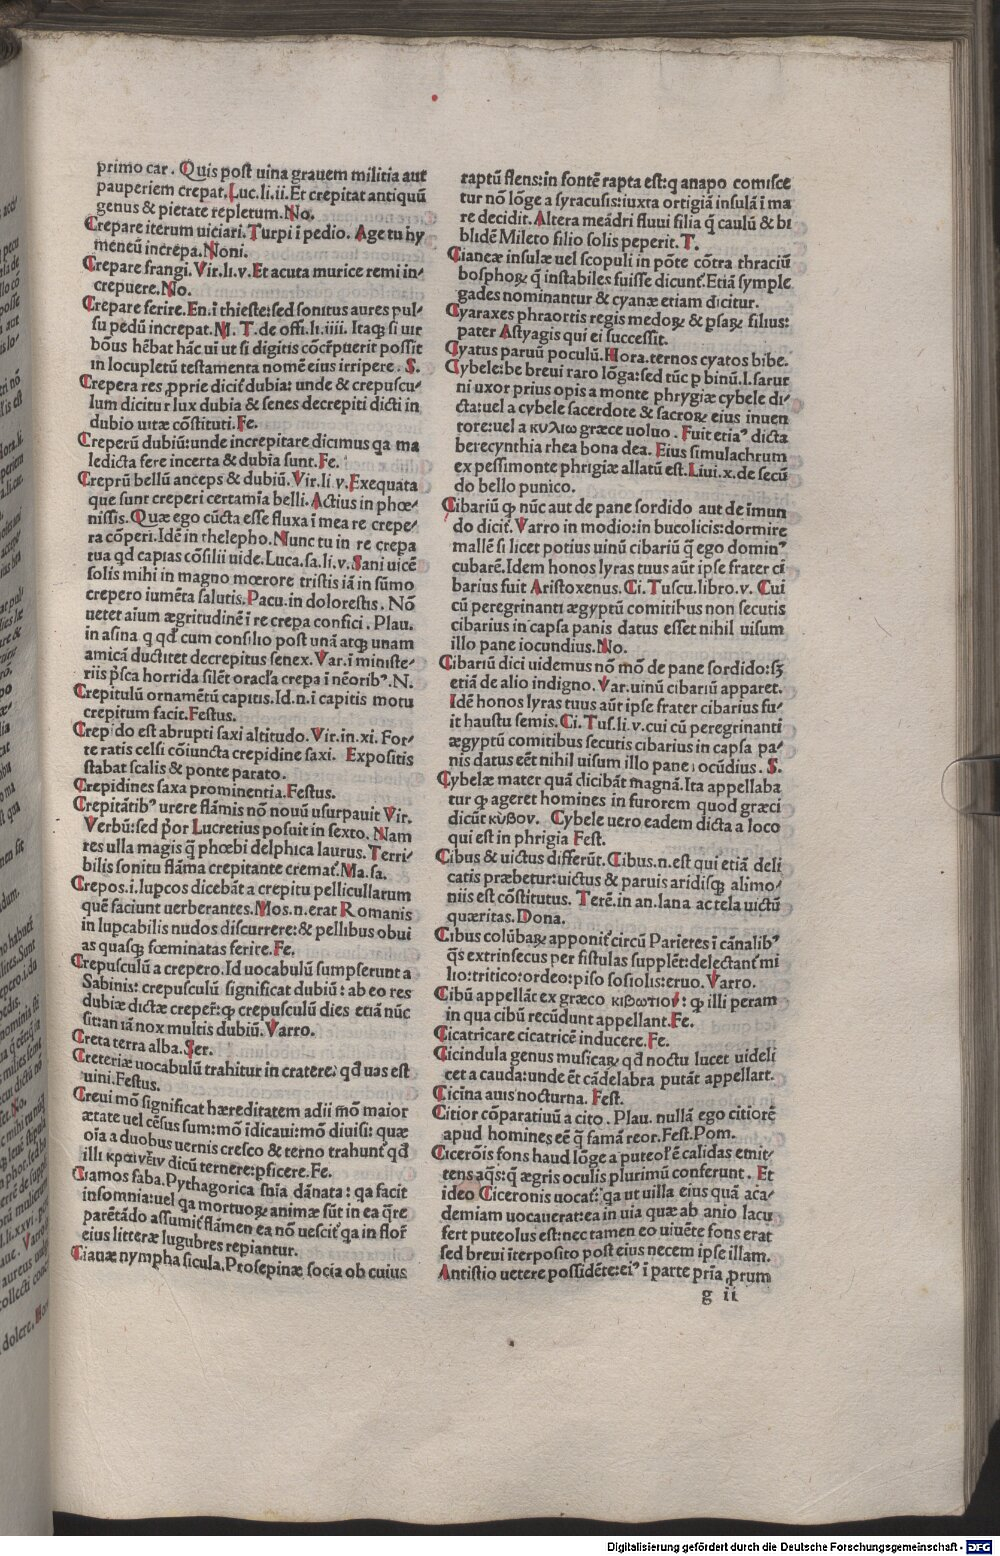 primo car. Quis post uina grauem militia aut
pauperiem crepat. Luc. li. ii. Et crepitat antiquū
genus & pietate repletum. No.
Crepare iterum uiciari. Turpi ī pedio. Age tu hy
meneū increpa. Noni.
Crepare frangi. Vir. li. v. Et acuta murice remi in⸗
crepuere. No.
Crepare ferire. En. i thieste: sed sonitus aures pul⸗
su pedū increpat. M. T. de offi. li. iiii. Itaqꝫ si uir
bōus hēbat hāc uī ut si digitis cōcr̄puerit possit
in locupletū testamenta nomē eius irripere. S.
Crepera res ꝓprie dicit̄ dubia: unde & crepuscu⸗
lum dicitur lux dubia & senes decrepiti dicti in
dubio uitæ cōstituti. Fe.
Creperū dubiū: unde increpitare dicimus qa ma
ledicta fere incerta & dubia sunt. Fe.
Creprū bellū anceps & dubiū. Vir. li v. Exequata
que sunt creperi certamīa belli. Actius in phœ⸗
nissis. Quæ ego cūcta esse fluxa ī mea re crepe⸗
ra cōperi. Idē in thelepho. Nunc tu in re crepa
tua qd capias cōsilii uide. Luca. sa. li. v. Sani uicē
solis mihi in magno mœrore tristis iā in sūmo
crepero iumēta salutis. Pacu. in dolorestis. Nō
uetet aium ægritudinē i re crepa confici. Plau.
in asina q qd̄ cum consilio post unā atqꝫ unam
amicā ductitet decrepitus senex. Var. i ministe⸗
riis p̄sca horrida silēt oracl̄a crepa i nēoribꝰ. N.
Crepitulū ornamētū capitis. Id. n. i capitis motu
crepitum facit. Festus.
Crepido est abrupti saxi altitudo. Vir. in. xi. For⸗
te ratis celsi cōiuncta crepidine saxi. Expositis
stabat scalis & ponte parato.
Crepidines saxa prominentia. Festus.
Crepitātibꝰ urere flāmis nō nouū usurpauit Vir.
Verbū: sed p̄or Lucretius posuit in sexto. Nam
res ulla magis q̄ phœbi delphica laurus. Terri⸗
bilis sonitu flāma crepitante cremat̄. Ma. sa.
Crepos. i. lupcos dicebāt a crepitu pellicullarum
quē faciunt uerberantes. Mos. n. erat Romanis
in lupcabilis nudos discurrere: & pellibus obui
as quasqꝫ fœminatas ferire. Fe.
Crepusculū a crepero. Id uocabulū sumpserunt a
Sabinis: crepusculū significat dubiū: ab eo res
dubiæ dictæ creper̄: qꝫ crepusculū dies etiā nūc
sit: an iā nox multis dubiū. Varro.
Creta terra alba. Ser.
Creterræ uocabulū trahitur in cratere: qd uas est
uini. Festus.
Creui mō significat hæreditatem adii mō maior
ætate uel cēsus sum: mō īdicaui: mō diuisi: quæ
oīa a duobus uernis cresco & terno trahunt̄ qd̄
illi κραινειν dicū ternere: pficere. Fe.
Ciamos faba. Pythagorica snīa dānata: qa facit
insomnia: uel qa mortuorꝫ animæ sūt in ea q̄re
parētādo assumit̄ flāmen ea nō uescit̄ qa in flor̄
eius litteræ lugubres repiantur.
Cianæ nympha sicula. Prosepinæ socia ob cuius
raptū flens: in fontē rapta est: q anapo comisce
tur nō lōge a syracusis: iuxta ortigiā insulā i ma
re decidit. Altera meādri fluui filia q̄ caulū & bi
blidē Mileto filio solis peperit. T.
Cianeæ insulæ uel scopuli in pōte cōtra thraciū
bosphorꝫ q̄ instabiles fuisse dicunt̄. Etiā symple
gades nominantur & cyanæ etiam dicitur.
Cyaraxes phraortis regis medorꝫ & psarꝫ filius:
pater Astyagis qui ei successit.
Cyatus paruū poculū. Hora. ternos cyatos bibe.
Cybele: be breui raro lōga: sed tūc p binū. l. sarur
ni uxor prius opis a monte phrygiæ cybele di⸗
cta: uel a cybele sacerdote & sacrorꝫ eius inuen
tore: uel a κυλιω græce uoluo. Fuit etiaꝰ dicta
berecynthia rhea bona dea. Eius simulachrum
ex pessimonte phrigiæ allatū est. Liui. x. de secū
do bello punico.
Cibariū qꝫ nūc aut de pane sordido aut de īmun
do dicit̄. Varro in modio: in bucolicis: dormire
mallē si licet potius uinū cibariū q̄ ego dominꝰ
cubarē. Idem honos lyras tuus aūt ipse frater ci
barius fuit Aristoxenus. Ci. Tuscu. libro. v. Cui
cū peregrinanti ægyptū comitibus non secutis
cibarius in capsa panis datus esset nihil uisum
illo pane iocundius. No.
Cibariū dici uidemus nō mō de pane sordido: sꝫ
etiā de alio indigno. Var. uinū cibariū apparet.
Idē honos lyras tuus aūt ipse frater cibarius fu⸗
it haustu semis. Ci. Tus. li. v. cui cū peregrinanti
ægyptū comitibus secutis cibarius in capsa pa⸗
nis datus eēt nihil uisum illo pane iocūdius. S.
Cybelæ mater quā dicibāt magnā. Ita appellaba
tur qꝫ ageret homines in furorem quod græci
dicūt κυβον. Cybele uero eadem dicta a loco
qui est in phrigia Fest.
Cibus & uictus differūt. Cibus. n. est qui etiā deli
catis præbetur: uictus & paruis aridisqꝫ alimo⸗
niis est cōstitutus. Terē. in an. lana ac tela uictū
quæritas. Dona.
Cibus colūbarꝫ apponit̄ circū Parietes i cānalibꝰ
q̄s extrinsecus per fistulas supplēt: delectant̄ mi
lio: tritico: ordeo: piso sosiolis: eruo. Varro.
Cibū appellāt ex græco κιβωτιον: qꝫ illi peram
in qua cibū recūdunt appellant. Fe.
Cicatricare cicatricē inducere. Fe.
Cicindula genus musicarꝫ qd̄ noctu lucet uideli
cet a cauda: unde ēt cādelabra putāt appellari.
Cicina auis nocturna. Fest.
Citior cōparatiuū a cito. Plau. nullā ego citiorē
apud homines eē q̄ famā reor. Fest. Pom.
Cicerōis fons haud lōge a puteol̄ ē calidas emit⸗
tens aq̄s: q̄ ægris oculis plurimū conferunt. Et
ideo Ciceronis uocat̄: qa ut uilla eius quā aca⸗
demiam uocauerat: ea in uia quæ ab anio lacu
fert puteolus est: nec tamen eo uiuēte fons erat
sed breui īterposito post eius necem ipse illam.
Antistio uetere possidēte: eiꝰ ī parte pr̄ia ꝓrum
g ii
Digitalisierung gefördert durch die Deutsche Forschungsgemeinschaft - DFG